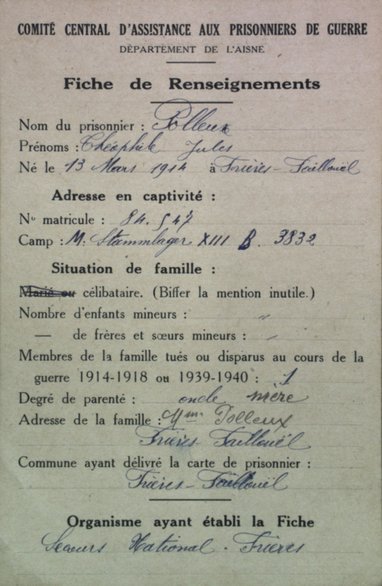 COMITÉ CENTRAL D'ASSISTANCE AUX PRISONNIERS DE GUERRE
DÉPARTEMENT DE L'AISNE
Fiche de Renseignements
Nom du prisonnier : Polleux
Prénoms : Théophile Jules
Né le 13 Mars 1914 à Frières-Faillouël
Adresse en captivité :
No matricule : 84.547
Camp : M. Stammlager XIII B. 3832
Situation de famille :
Marié ou célibataire. (Biffer la mention inutile.)
Nombre d'enfants mineurs : "
— de frères et sœurs mineurs : "
Membres de la famille tués ou disparus au cours de la
guerre 1914-1918 ou 1939-1940 : 1
Degré de parenté : oncle mère
Adresse de la famille : Mme Polleux
Frières Faillouël
Commune ayant délivré la carte de prisonnier :
Frières-Faillouël
Organisme ayant établi la Fiche
Secours National. Frières